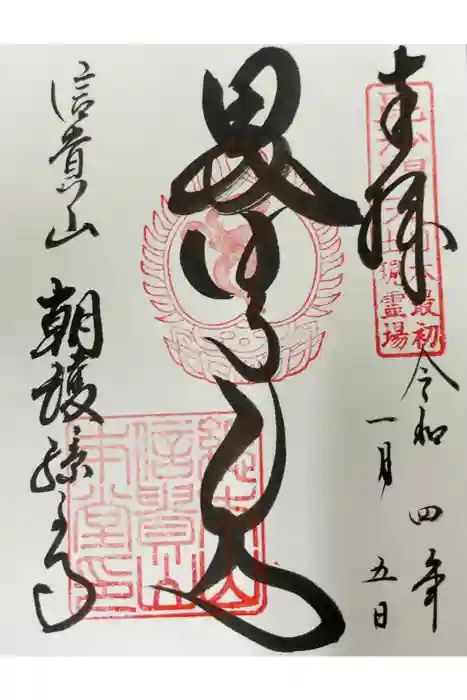 奉拝
日本最初
出現霊場
令和四年
一月五日
毘沙門天
総本山
信貴山
本堂印
信貴山 朝護孫子寺